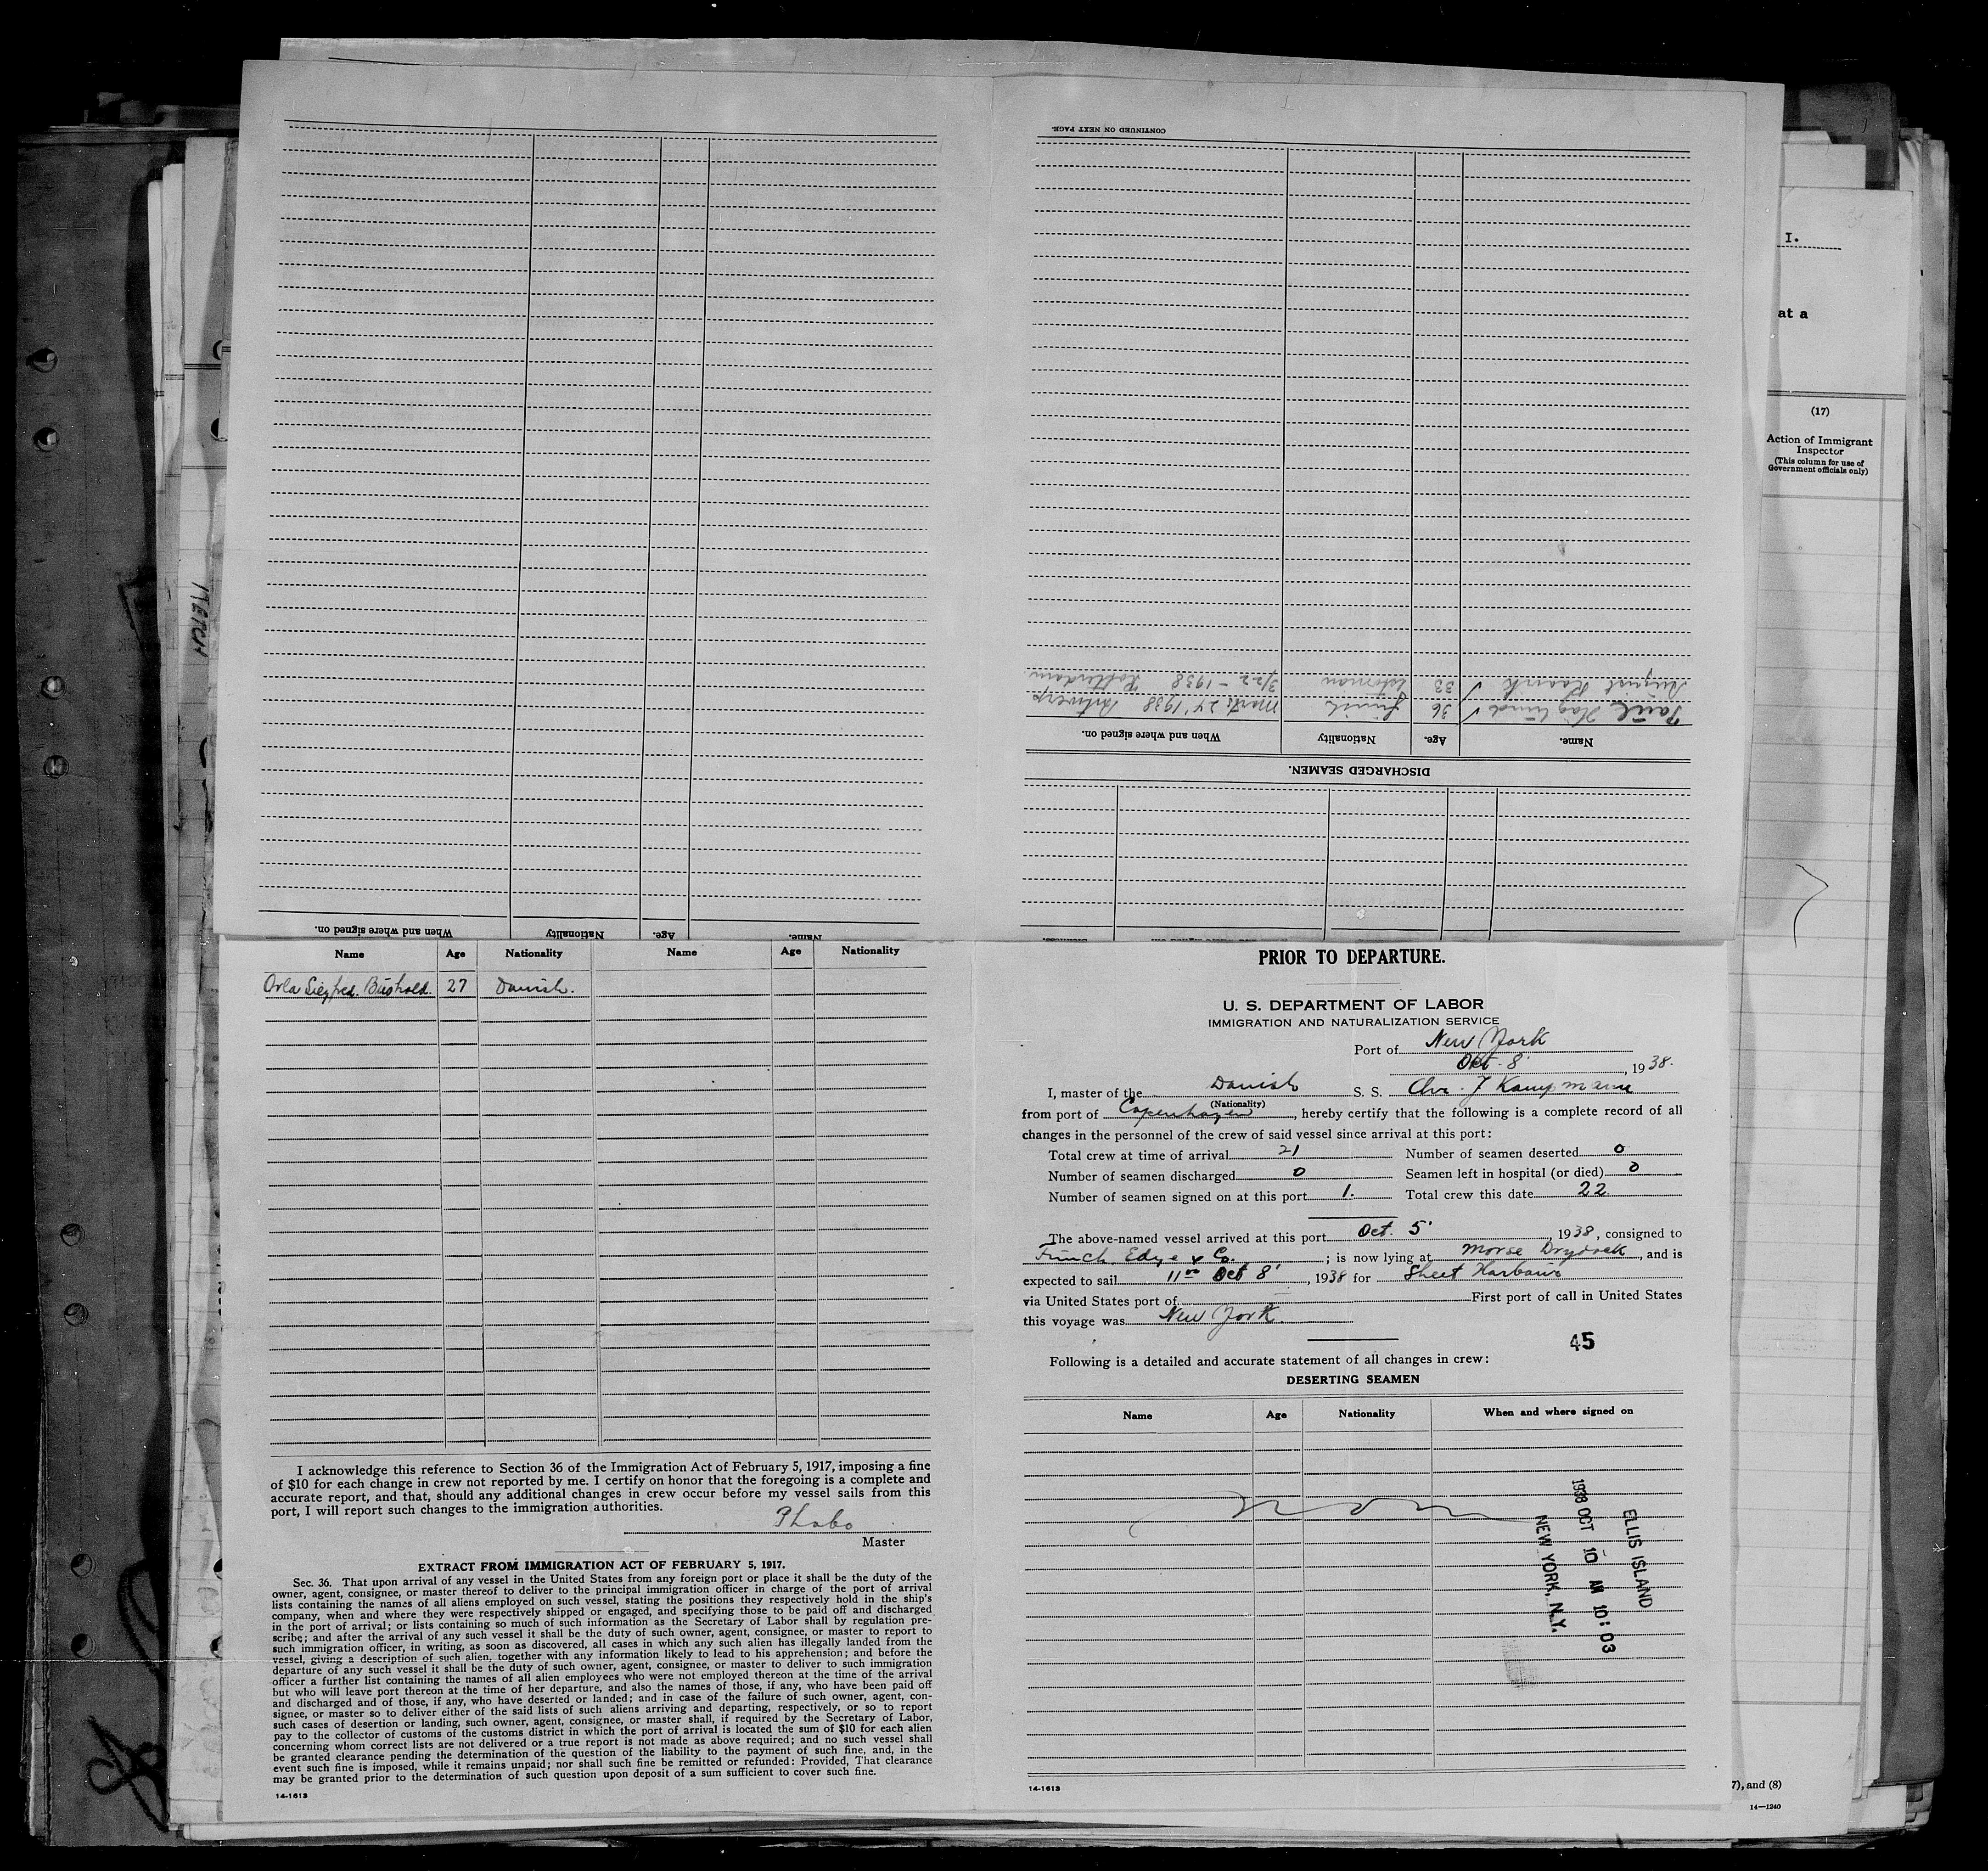 CONTINUED ON NEXT PAGE.
August Kasnk ✓ 33 Estonian 3/22 - 1938 Rotterdam
Paul Haglund ✓ 36 Finnish Marts 24' 1938 Antwerp
Name. Age. Nationality When and where signed on.
DISCHARGED SEAMEN.
Name. Age. Nationality When and where signed on.
I.
at a
(17)
Action of Immigrant
Inspector
(This column for use of
Government officials only)
Name Age Nationality Name Age Nationality
Orla Siegfred 27 Danish.
I acknowledge this reference to Section 36 of the Immigration Act of February 5, 1917, imposing a fine
of $10 for each change in crew not reported by me. I certify on honor that the foregoing is a complete and
accurate report, and that, should any additional changes in crew occur before my vessel sails from this
port, I will report such changes to the immigration authorities.
Master
EXTRACT FROM IMMIGRATION ACT OF FEBRUARY 5, 1917.
Sec. 36. That upon arrival of any vessel in the United States from any foreign port or place it shall be the duty of the
owner, agent, consignee, or master thereof to deliver to the principal immigration officer in charge of the port of arrival
lists containing the names of all aliens employed on such vessel, stating the positions they respectively hold in the ship's
company, when and where they were respectively shipped or engaged, and specifying those to be paid off and discharged
in the port of arrival; or lists containing so much of such information as the Secretary of Labor shall by regulation pre-
scribe; and after the arrival of any such vessel it shall be the duty of such owner, agent, consignee, or master to report to
such immigration officer, in writing, as soon as discovered, all cases in which any such alien has illegally landed from the
vessel, giving a description of such alien, together with any information likely to lead to his apprehension; and before the
departure of any such vessel it shall be the duty of such owner, agent, consignee, or master to deliver to such immigration
officer a further list containing the names of all alien employees who were not employed thereon at the time of the arrival
but who will leave port thereon at the time of her departure, and also the names of those, if any, who have been paid off
and discharged and of those, if any, who have deserted or landed; and in case of the failure of such owner, agent, con-
signee, or master so to deliver either of the said lists of such aliens arriving and departing, respectively, or so to report
such cases of desertion or landing, such owner, agent, consignee, or master shall, if required by the Secretary of Labor,
pay to the collector of customs of the customs district in which the port of arrival is located the sum of $10 for each alien
concerning whom correct lists are not delivered or a true report is not made as above required; and no such vessel shall
be granted clearance pending the determination of the question of the liability to the payment of such fine, and, in the
event such fine is imposed, while it remains unpaid; nor shall such fine be remitted or refunded: Provided, That clearance
may be granted prior to the determination of such question upon deposit of a sum sufficient to cover such fine.
14-1613
PRIOR TO DEPARTURE.
U. S. DEPARTMENT OF LABOR
IMMIGRATION AND NATURALIZATION SERVICE
Port of New York
Oct. 8', 1938.
I, master of the Danish S. S. Chr. J Kampmann
(Nationality)
from port of Copenhagen, hereby certify that the following is a complete record of all
changes in the personnel of the crew of said vessel since arrival at this port:
Total crew at time of arrival 21 Number of seamen deserted 0
Number of seamen discharged 0 Seamen left in hospital (or died) 0
Number of seamen signed on at this port 1. Total crew this date 22
The above-named vessel arrived at this port Oct. 5', 1938, consigned to
Funch, Edye & Co.; is now lying at Morse Drydock, and is
expected to sail 11oo Oct 8', 1938 for Sheet Harbour
via United States port of First port of call in United States
this voyage was New York.
45
Following is a detailed and accurate statement of all changes in crew:
DESERTING SEAMEN
Name Age Nationality When and where signed on
ELLIS ISLAND
1938 OCT 10 AM 10:03
NEW YORK, N.Y.
14-1613
7), and (8)
14—1240